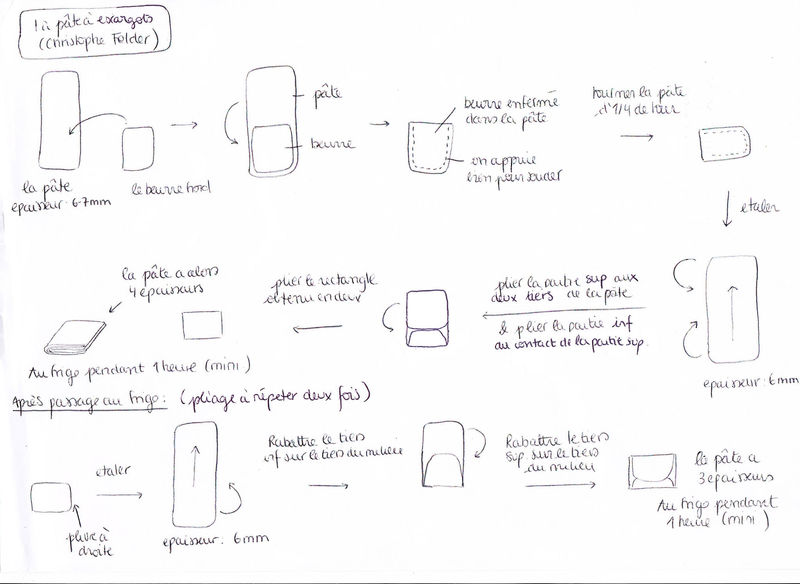 la pâte à exargots
(Christophe Felder)
la pâte
epaisseur: 6-7mm
le beurre
pâte
beurre
beurre enfermé
dans la pâte
on appuie
bien pour souder
tourner la pâte
d'1/4 de tour
etaler
epaisseur: 6mm
plier la partie sup aux
deux tiers de la pâte
& plier la partie inf
au contact de la partie sup.
plier le rectangle
obtenu en deux
la pâte a alors
4 epaisseurs
Au frigo pendant 1 heure (mini)
Après passage au frigo: (pliage à répeter deux fois)
pliure à
droite
etaler
epaisseur: 6mm
Rabattre le tiers
inf sur le tiers du milieu
Rabattre le tiers
sup. sur le tiers
du milieu
la pâte a
3 epaisseurs
Au frigo pendant
1 heure (mini)